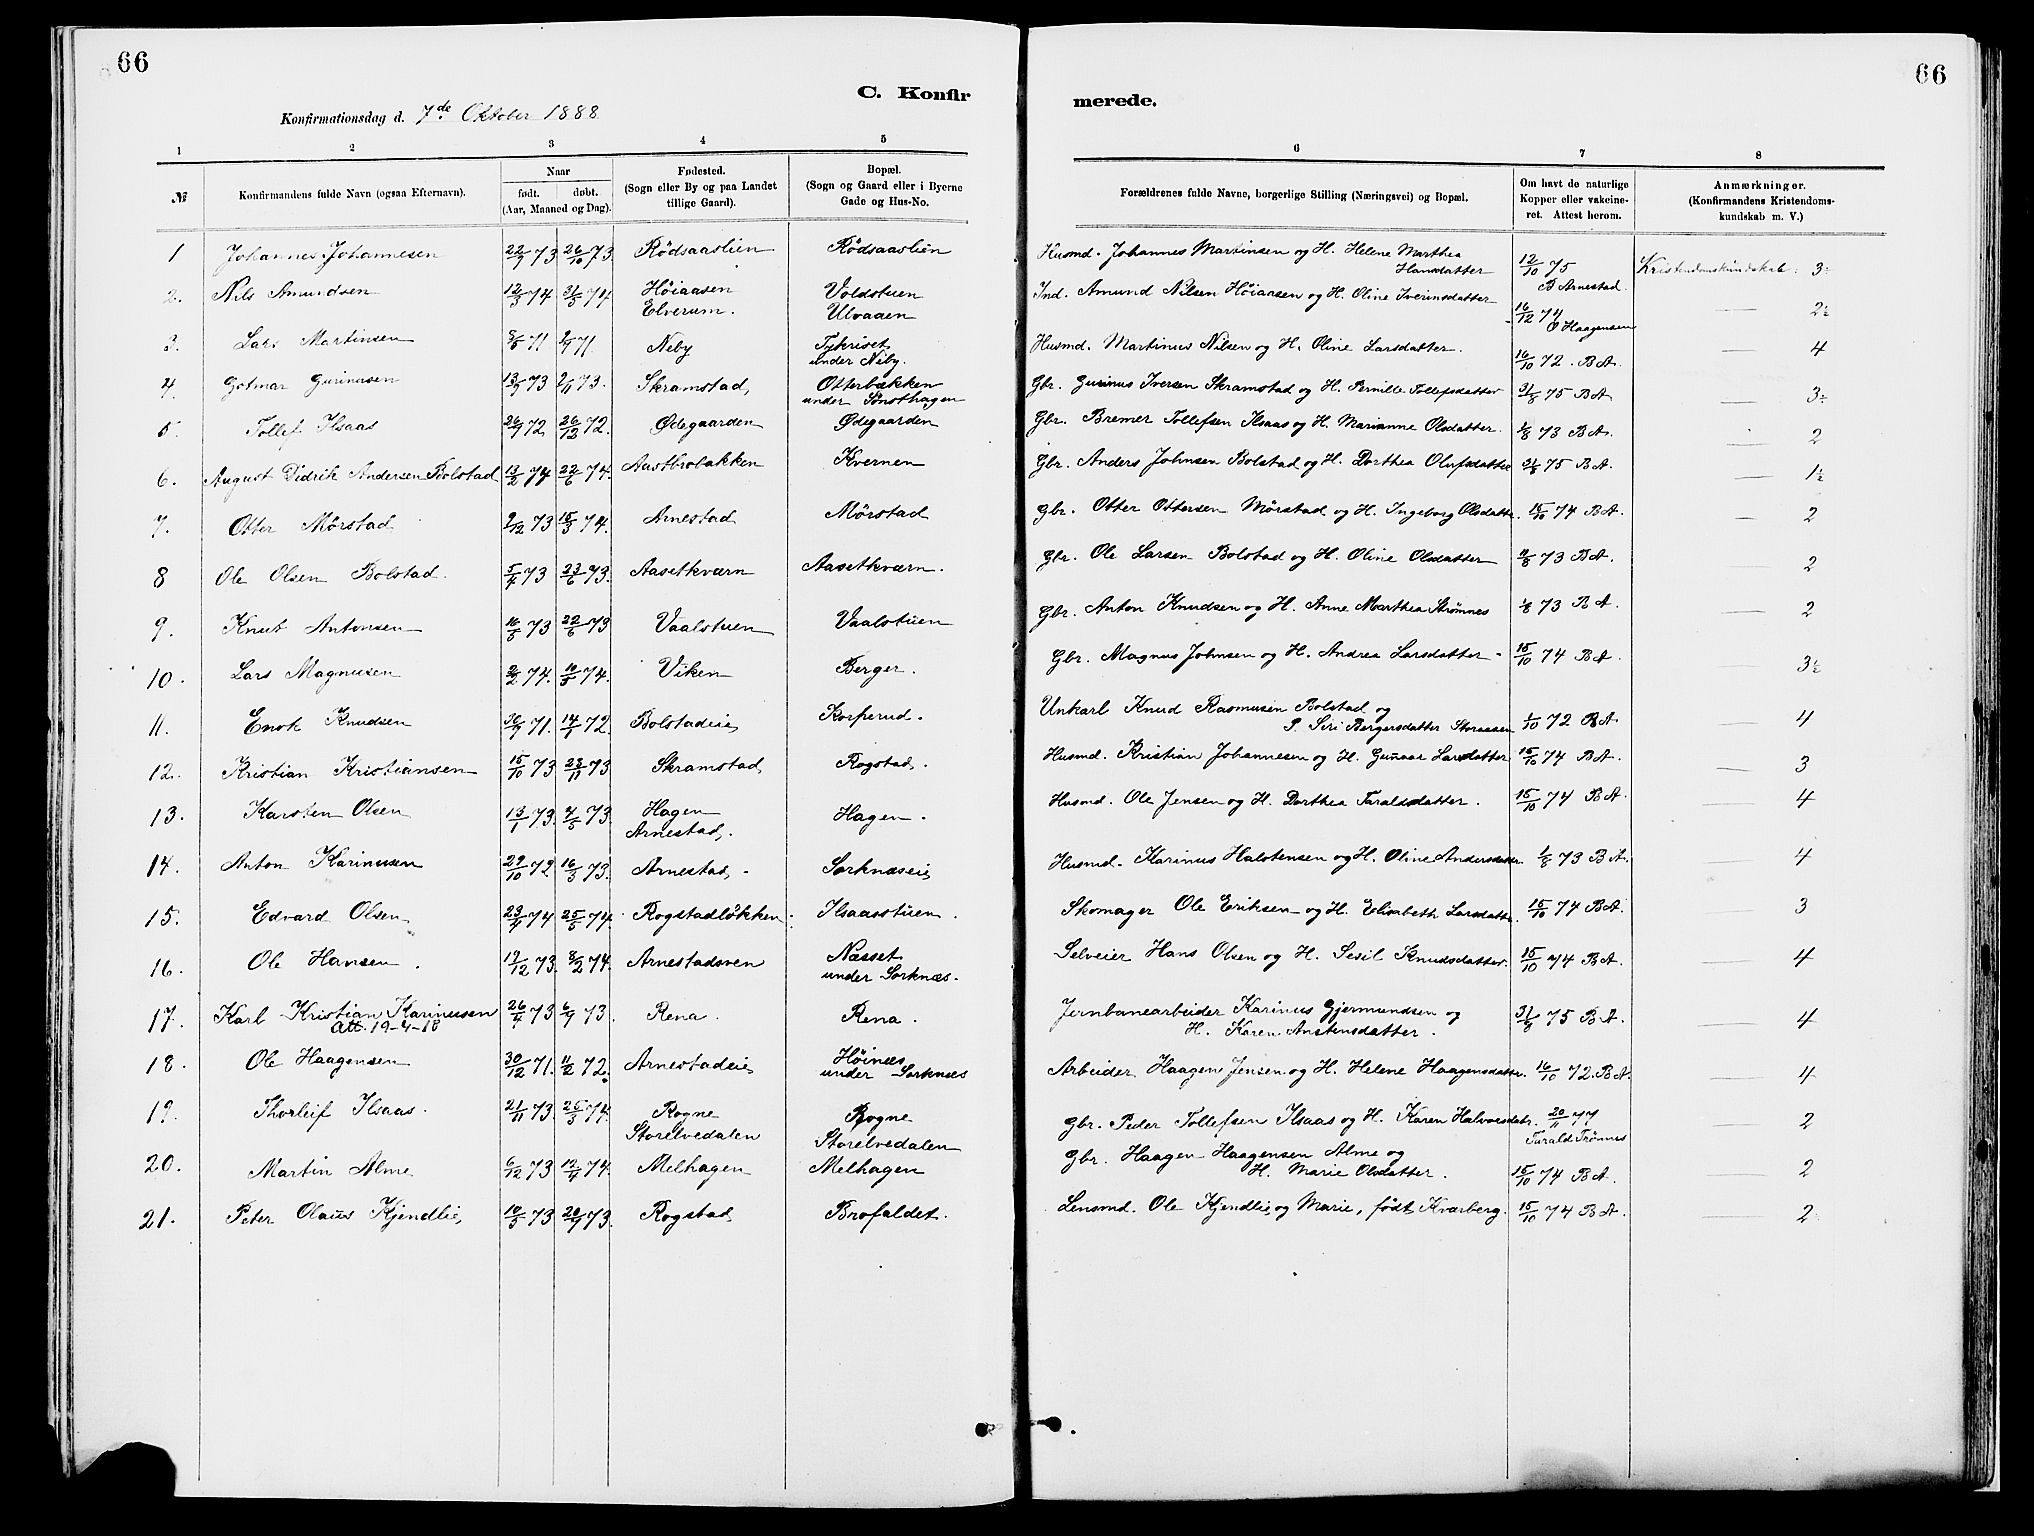 66
66
C. Konfir
merede.
Konfirmationsdag d. 7de Oktober 1888
1 2 3 4 5 6 7 8
№ Konfirmandens fulde Navn (ogsaa Efternavn). Naar født. døbt. (Aar, Maaned og Dag). Fødested. (Sogn eller By og paa Landet tillige Gaard). Bopæl. (Sogn og Gaard eller i Byerne Gade og Hus-No. Forældrenes fulde Navne, borgerlige Stilling (Næringsvei) og Bopæl. Om havt de naturlige Kopper eller vakcineret. Attest herom. Anmærkninger. (Konfirmandens Kristendomskundskab m. V.)
1 Johannes Johannesen 22/9 73 26/10 73 Rödsaaslien Rödsaaslien Husmd. Johannes Martinsen og H. Helene Marthea Hansdatter 12/10 75 B Arnestad Kristendomskundskab: 3÷
2. Nils Amundsen 12/3 74 31/5 74 Höiaasen Elverum. Voldstuen Ulvaaen Ind. Amund Nilsen Höiaasen og H. Oline Iverinsdatter 16/12 74 O Haagensen 2½
3. Lars Martinsen 71 71 Neby Tykriset under Neby. Husmd. Martinus Nilsen og H. Oline Larsdatter. 16/10 72. B A. 4
4. Gotmar Gurinusen 13/9 73 2/11 73. Skramstad, Otterbækken under Sönsthagen Gbr. Gurinus Iversen Skramstad og H. Pernille Tollefsdatter 31/8 75 B A 3÷
5. Tollef Ilsaas 26/9 72 26/12 72. Ødegaarden Ødegaarden Gbr. Bremer Tollefsen Ilsaas og H. Marianne Olsdatter. 1/8 73 B A. 2
6. August Didrik Andersen Bolstad 13/2 74 22/6 74. Aastbrobakken Kvernen Gbr. Anders Johnsen Bolstad og H. Dorthea Olufsdatter 31/8 75 B A. 1½
7. Otter Mörstad 9/12 73 15/3 74. Arnestad Mörstad Gbr. Otter Ottersen Mörstad og H. Ingeborg Olsdatter. 15/10 74 B A. 2
8 Ole Olsen Bolstad. 5/4 73 23/6 73. Aasetkværn Aasetkværn. Gbr. Ole Larsen Bolstad og H. Oline Olsdatter 73 B A. 2
9. Knut Antonsen 16/5 73 22/6 73 Vaalstuen Vaalstuen Gbr. Anton Knudsen og H. Anne Marthea Strömnes 1/8 73 B A. 2
10. Lars Magnusen 74. 10/5 74. Viken Berger. Gbr. Magnus Johnsen og H. Andrea Larsdatter 15/10 74 B A. 3½
11. Enok Knudsen 30/9 71. 14/1 72. Bolstadeie Korperud. Unkarl Knud Rasmusen Bolstad og P. Siri Bergersdatter Storaasen 1/10 72 B A. 4
12. Kristian Kristiansen 15/10 73 23/11 73 Skramstad Rogstad. Husmd. Kristian Johannesen og H. Gunaar Larsdatter 15/10 74 B A. 3
13. Karsten Olsen 13/1 73. 4/5 73. Hagen Arnestad. Hagen. Husmd. Ole Jensen og H. Dorthea Taraldsdatter. 15/10 74 B A. 4
14. Anton Karinusen 29/10 72. 16/3 73. Arnestad, Sorknæseie Husmd. Karinus Halstensen og H. Oline Andersdatter 1/8 73 B A. 4
15. Edvard Olsen 23/4 74 25/5 74. Rogstadlökken Ilsaasstuen. Skomager Ole Eriksen og H. Elisabeth Larsdatter. 15/10 74 B A. 3
16. Ole Hansen. 17/12 73. 8/2 74. Arnestadsven Næsset under Sorknæs. Selveier Hans Olsen og H. Sesil Knudsdatter. 15/10 74 B A. 4
17. Karl Kristian Karinusen Att. 19-4-18 26/4 73 6/7 73. Rena. Rena. Jernbanearbeider Karinus Gjermundsen og H. Karen Anstensdatter. 75 B A. 4
18. Ole Haagensen 30/12 71. 11/2 72. Arnestadeie Höinæs under Sorknæs Arbeider Haagen Jensen og H. Helene Haagensdatter. 16/10 72. B A. 4
19. Thorleif Ilsaas. 21/11 73. 25/3 74. Rogne Storelvedalen Rogne Storelvedalen Gbr. Peder Tollefsen Ilsaas og H. Karen Halvorsdatr. 20/11 77 Tarald Trönnes 2
20. Martin Alme 6/12 73 12/4 74. Melhagen Melhagen Gbr. Haagen Haagensen Alme og H. Marie Olsdatter. 15/10 74 B A. 2
21. Peter Olaus Kjendlie, 10/5 73 20/7 73. Rogstad Brofaldet. Lensmd. Ole Kjendlie og Marie, født Kvarberg. 15/10 74 B A. 2